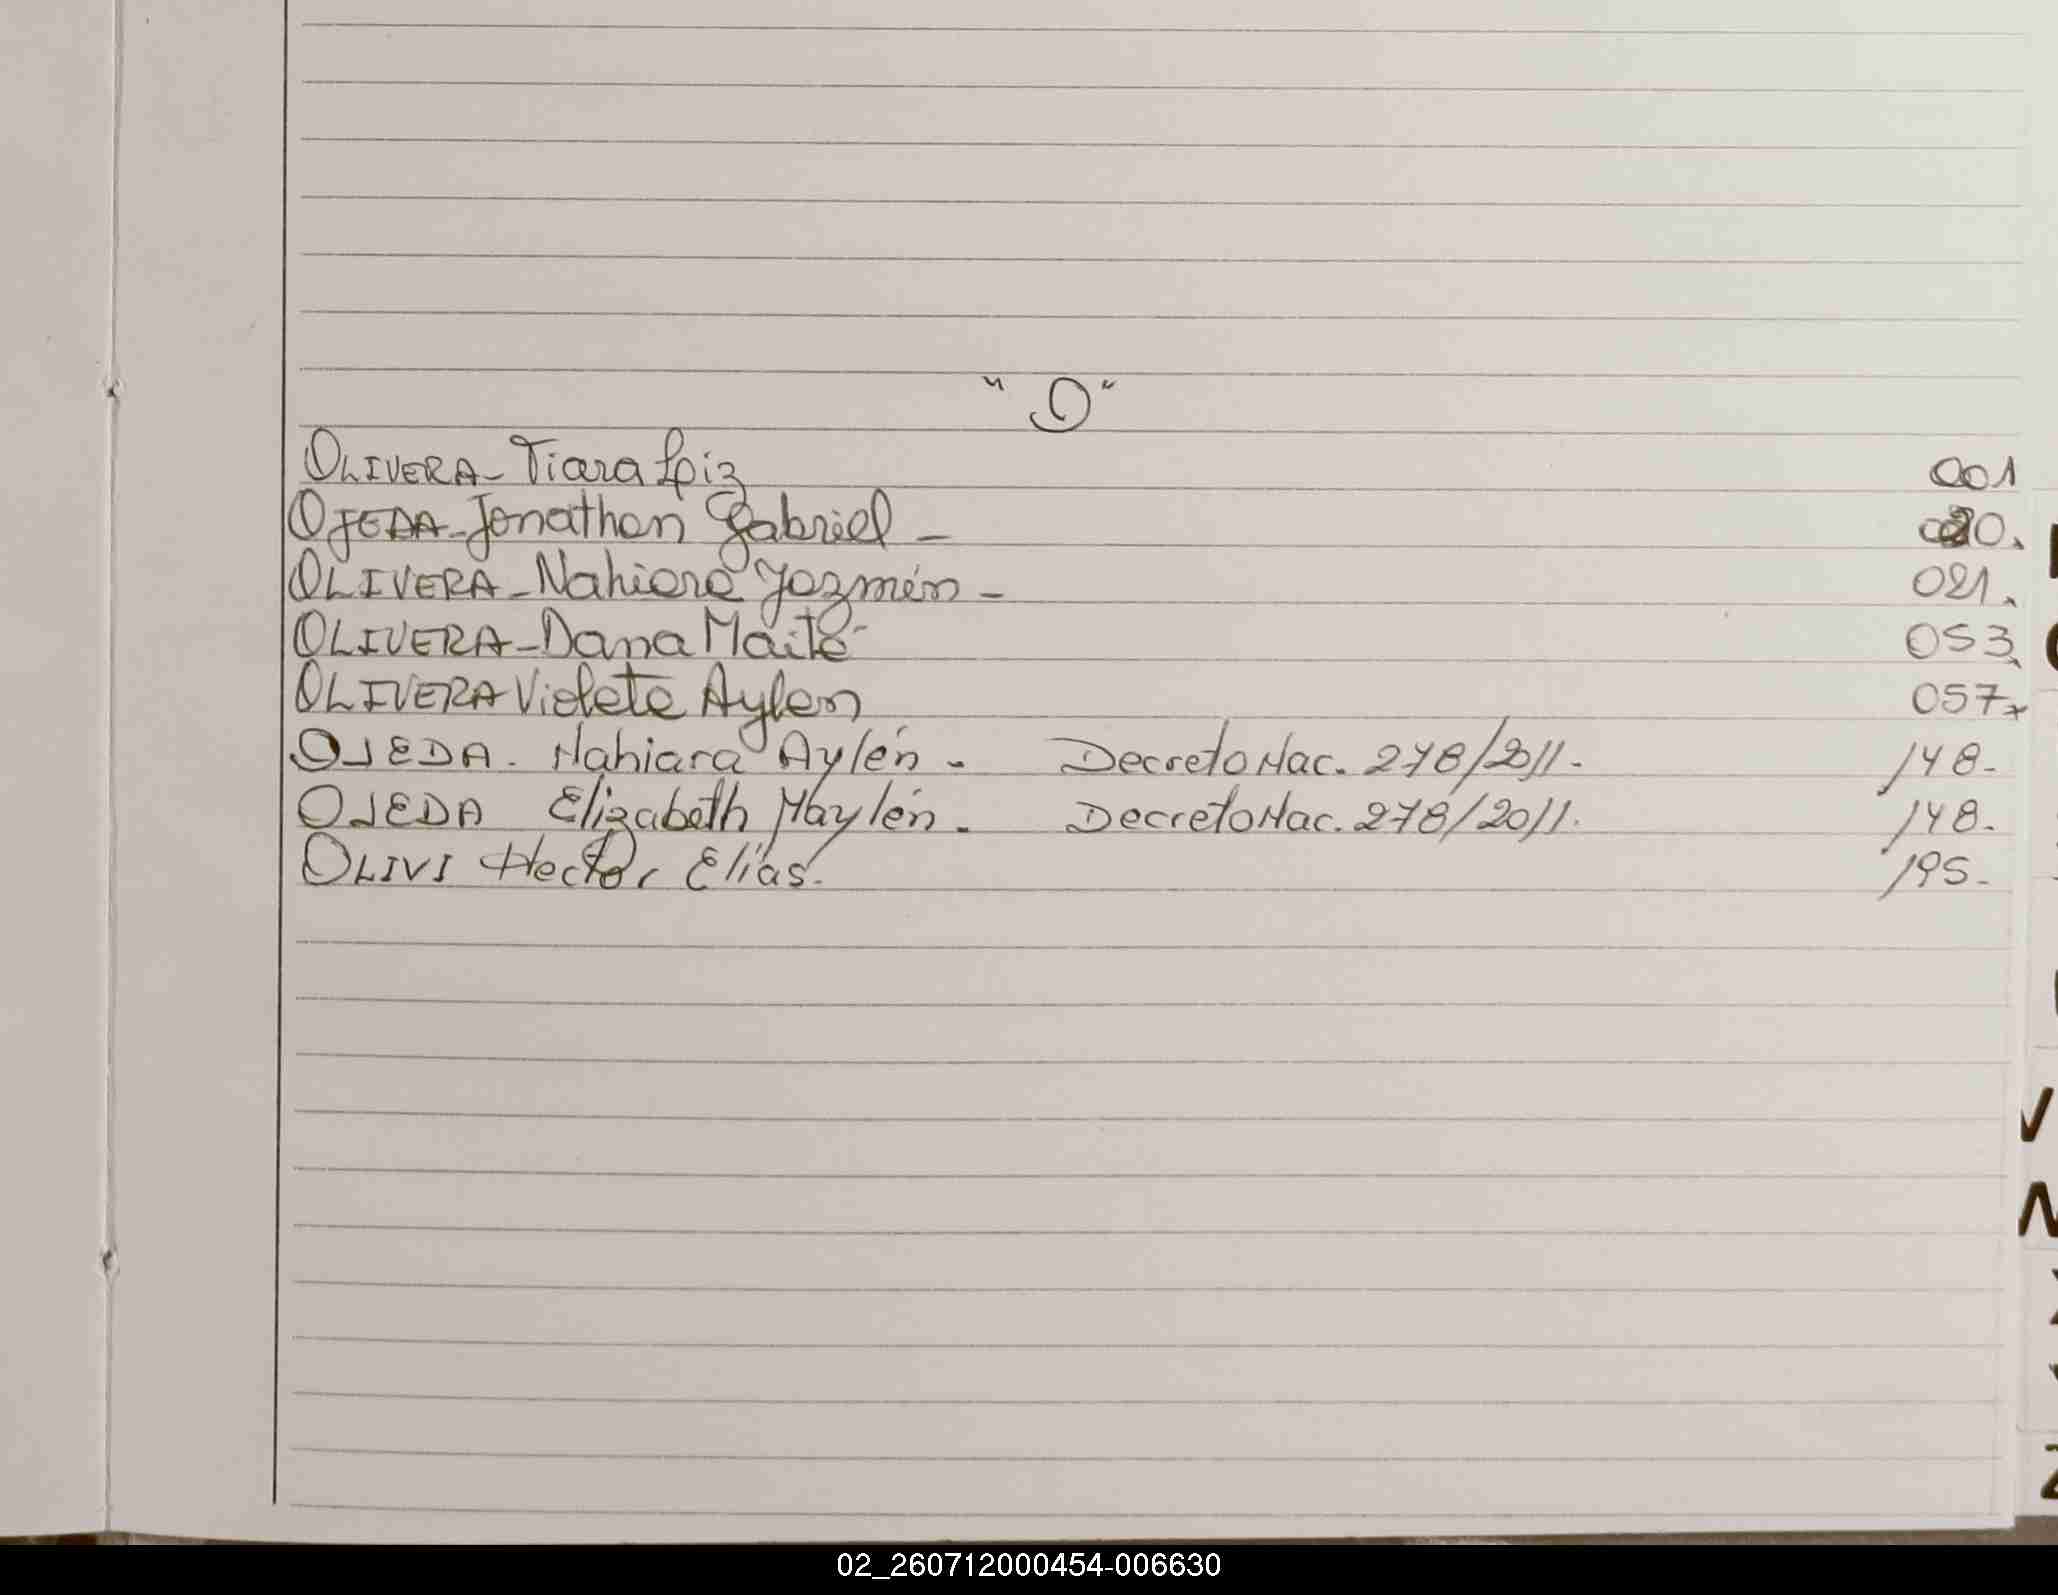 " O "
OLIVERA - Tiara Loiz 001
OJEDA - Jonathan Gabriel - 020.
OLIVERA - Nahiara Yazmín - 021.
OLIVERA - Dana Maité 053.
OLIVERA Violeta Aylen 057.
OJEDA. Nahiara Aylén - Decreto Nac. 278/2011. 148.
OJEDA Elizabeth Maylén. Decreto Nac. 278/2011. 148.
OLIVI Hector Elías. 195.
V
Z
02_260712000454-006630